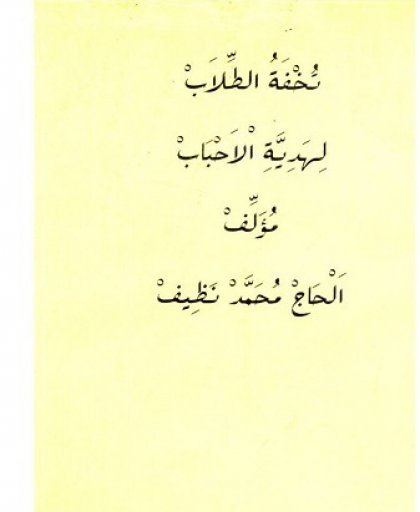 تُحْفَةُ الطُّلَّابْ
لِهَدِيَّةِ الْاَحْبَابْ
مُؤَلِّفْ
اَلْحَاجْ مُحَمَّدْ نَظِيفْ